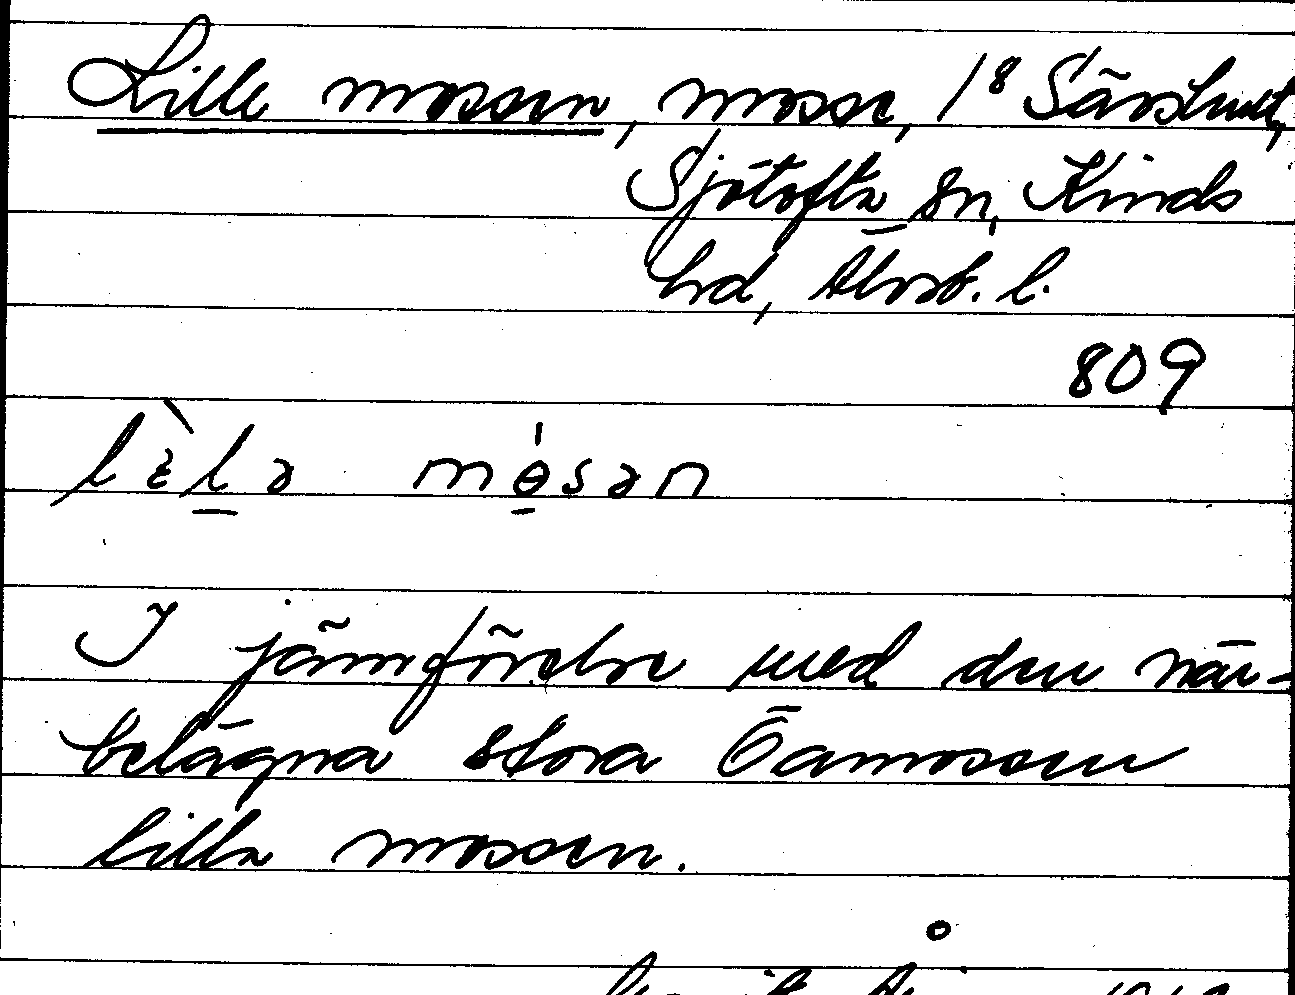 Lille mossen, mosse, 1⁸ Särshult,
Sjötofta sn, Kinds
hd, Älvsb. l.
809
lὲlə mɵ̍sən
I jämförelse med den när-
belägna stora Öamossen
lilla mossen.